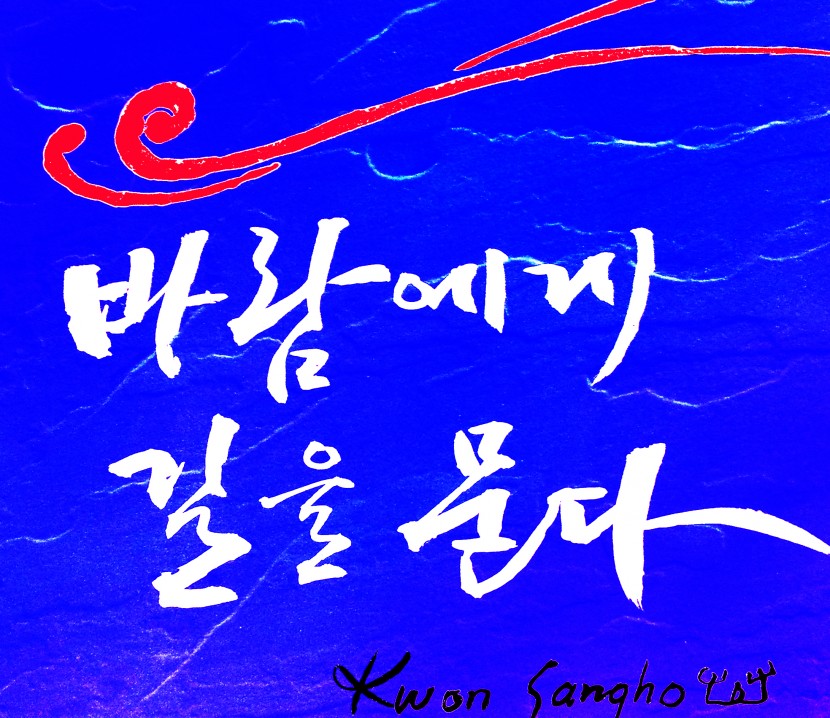 바람에게
길을 묻다
Kwon Sangho